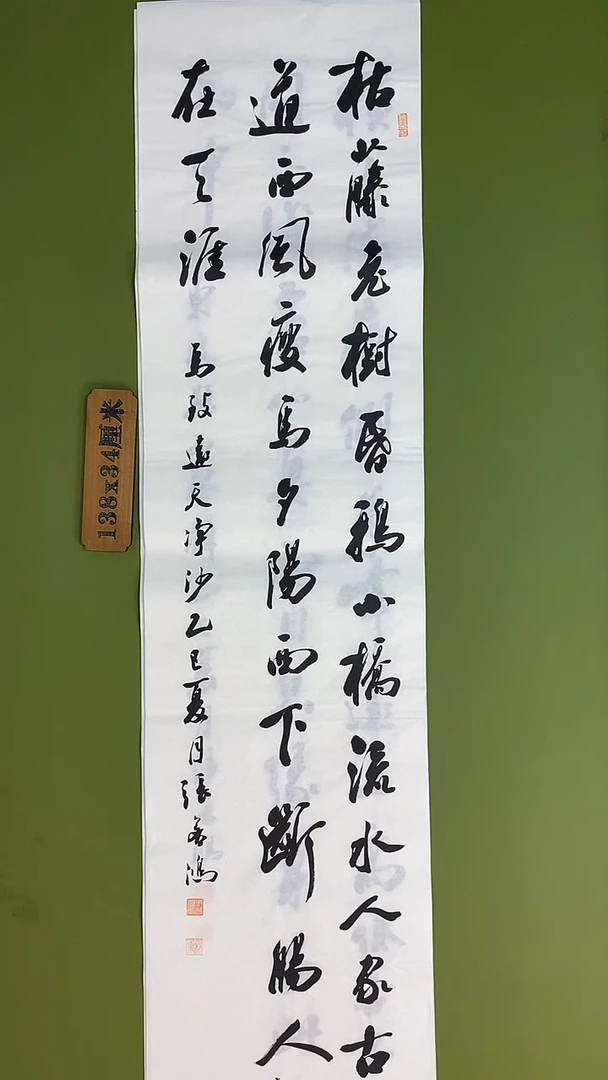 枯藤老樹昏鴉小橋流水人家古
道西風瘦馬夕陽西下斷腸人
在天涯
馬致遠天淨沙乙巳夏月張善鴻
138x34厘米